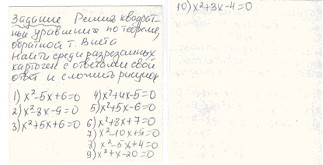 Задание Решить квадрат
ные уравнения по теореме,
обратной т. Виета
Найти среди разрезанных
карточек с ответами свой
ответ и сложить рисунок
1) x²-5x+6=0
2) x²-8x-9=0
3) x²+5x+6=0
4) x²+4x-5=0
5) x²+5x-6=0
6) x²+8x+7=0
7) x²-10x+9=0
8) x²-5x+4=0
9) x²+x-20=0
10) x²+3x-4=0